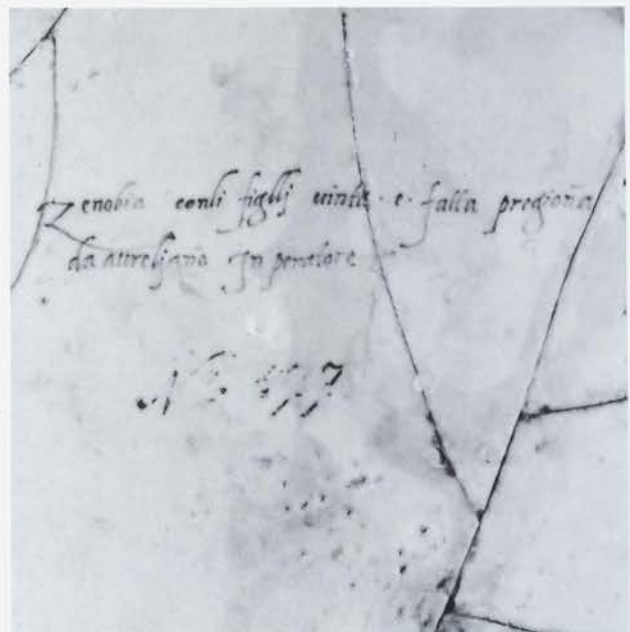 Zenobia conli figllj uinta · e · fatta pregiona
da aureljano Jn peratore